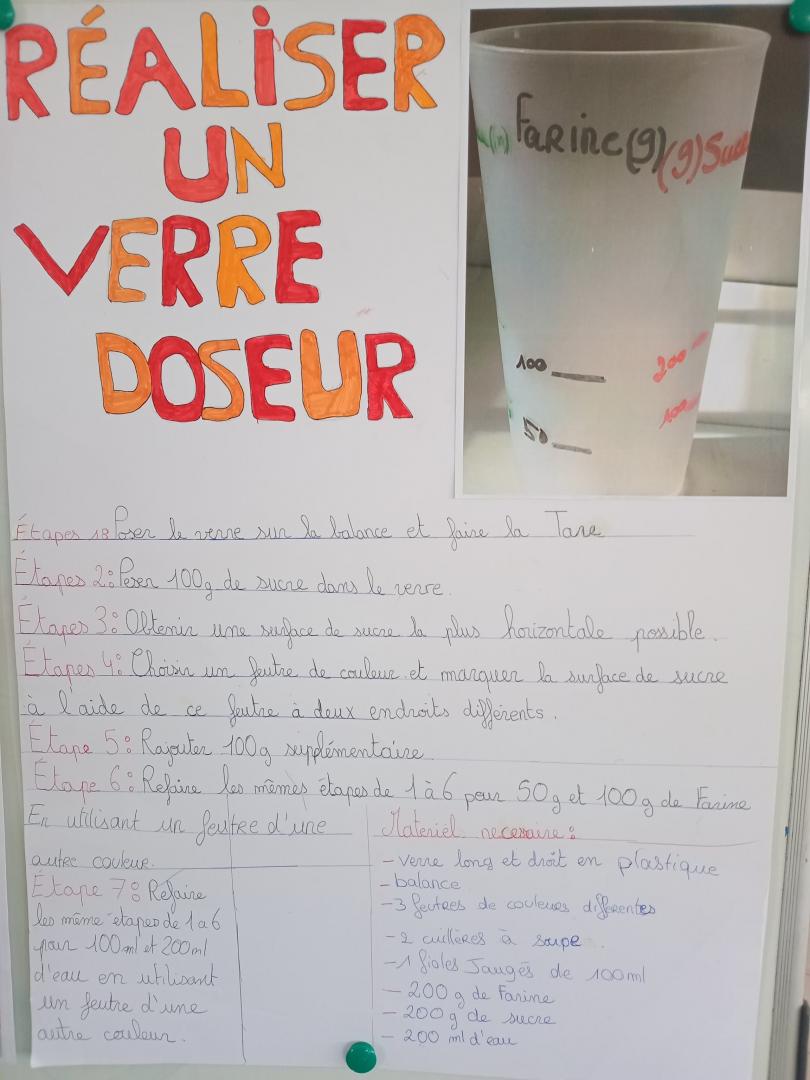 RÉALISER
UN
VERRE
DOSEUR
Farine(g)
(g)Suc
100
200
100
50
Étapes 1: Poser le verre sur la balance et faire la Tare
Étapes 2: Peser 100g de sucre dans le verre.
Étapes 3: Obtenir une surface de sucre la plus horizontale possible.
Étapes 4: Choisir un feutre de couleur et marquer la surface de sucre
à l'aide de ce feutre à deux endroits différents.
Étape 5: Rajouter 100g supplémentaire
Étape 6: Refaire les mêmes étapes de 1 à 6 pour 50g et 100g de Farine
En utilisant un feutre d'une
autre couleur.
Étape 7: Refaire
les même étapes de 1 a 6
pour 100ml et 200ml
d'eau en utilisant
un feutre d'une
autre couleur.
Materiel necessaire:
- verre long et droit en plastique
- balance
- 3 feutres de couleurs differentes
- 2 cuillères à soupe.
- 1 fioles Jaugés de 100ml
- 200g de Farine
- 200g de sucre
- 200 ml d'eau